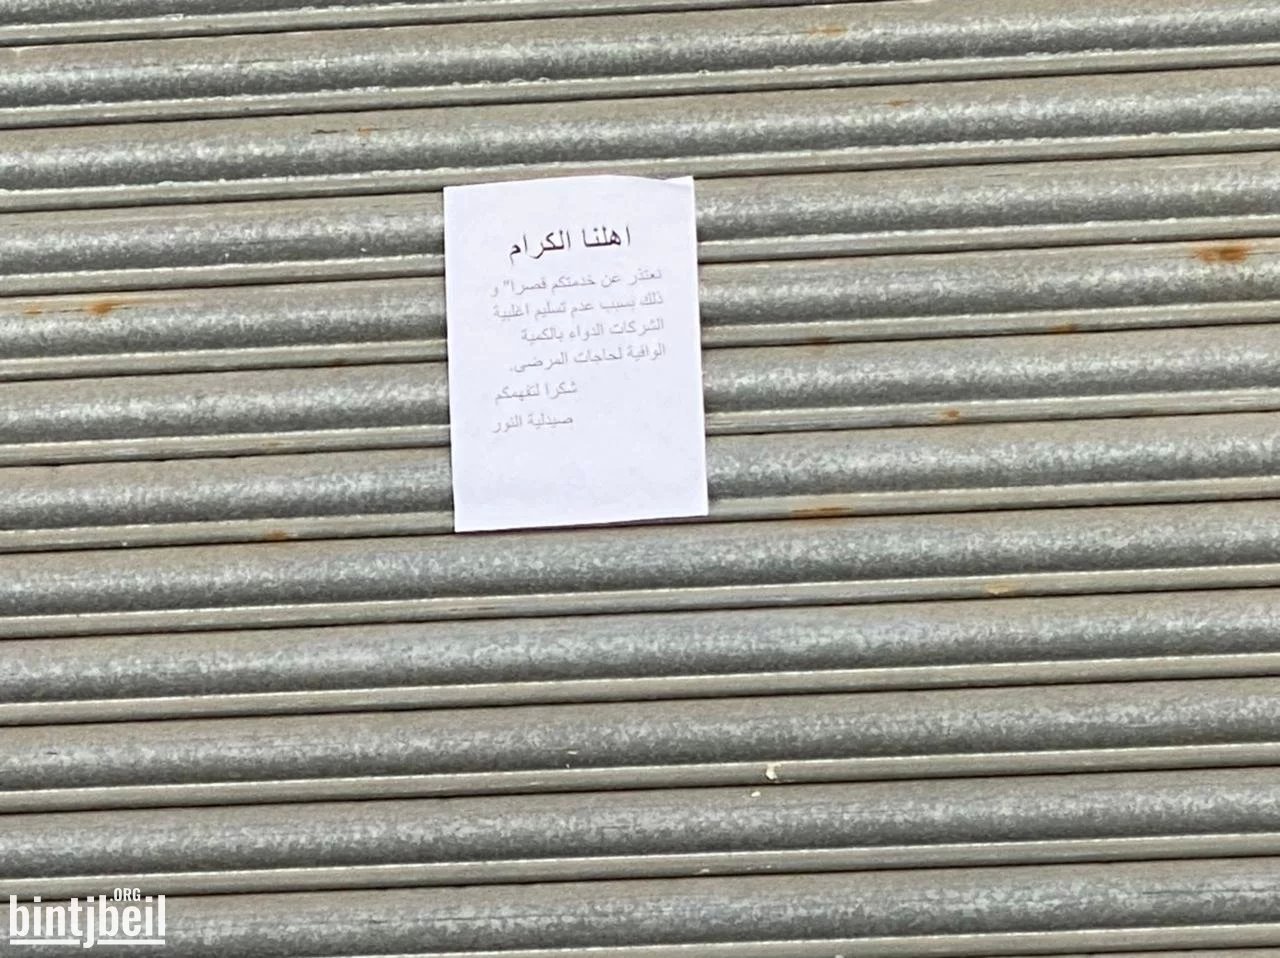 اهلنا الكرام
نعتذر عن خدمتكم قصرا" و
ذلك بسبب عدم تسليم اغلبية
الشركات الدواء بالكمية
الوافية لحاجات المرضى.
شكرا لتفهمكم
صيدلية النور
bintjbeil.ORG